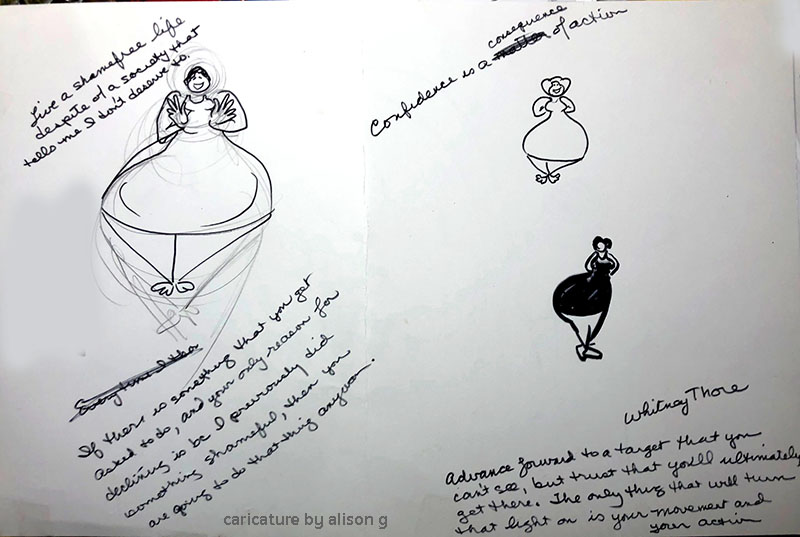 Live a shamefree life
despite of a society that
tells me I don't deserve to.
Everytime I tho
If there is something that you get
asked to do, and your only reason for
declining is bc I previously did
something shameful, then you
are going to do that thing anyway.
caricature by alison g
consequence
Confidence is a of action
Whitney Thore
Advance forward to a target that you
can't see, but trust that you'll ultimately
get there. The only thing that will turn
that light on is your movement and
your action